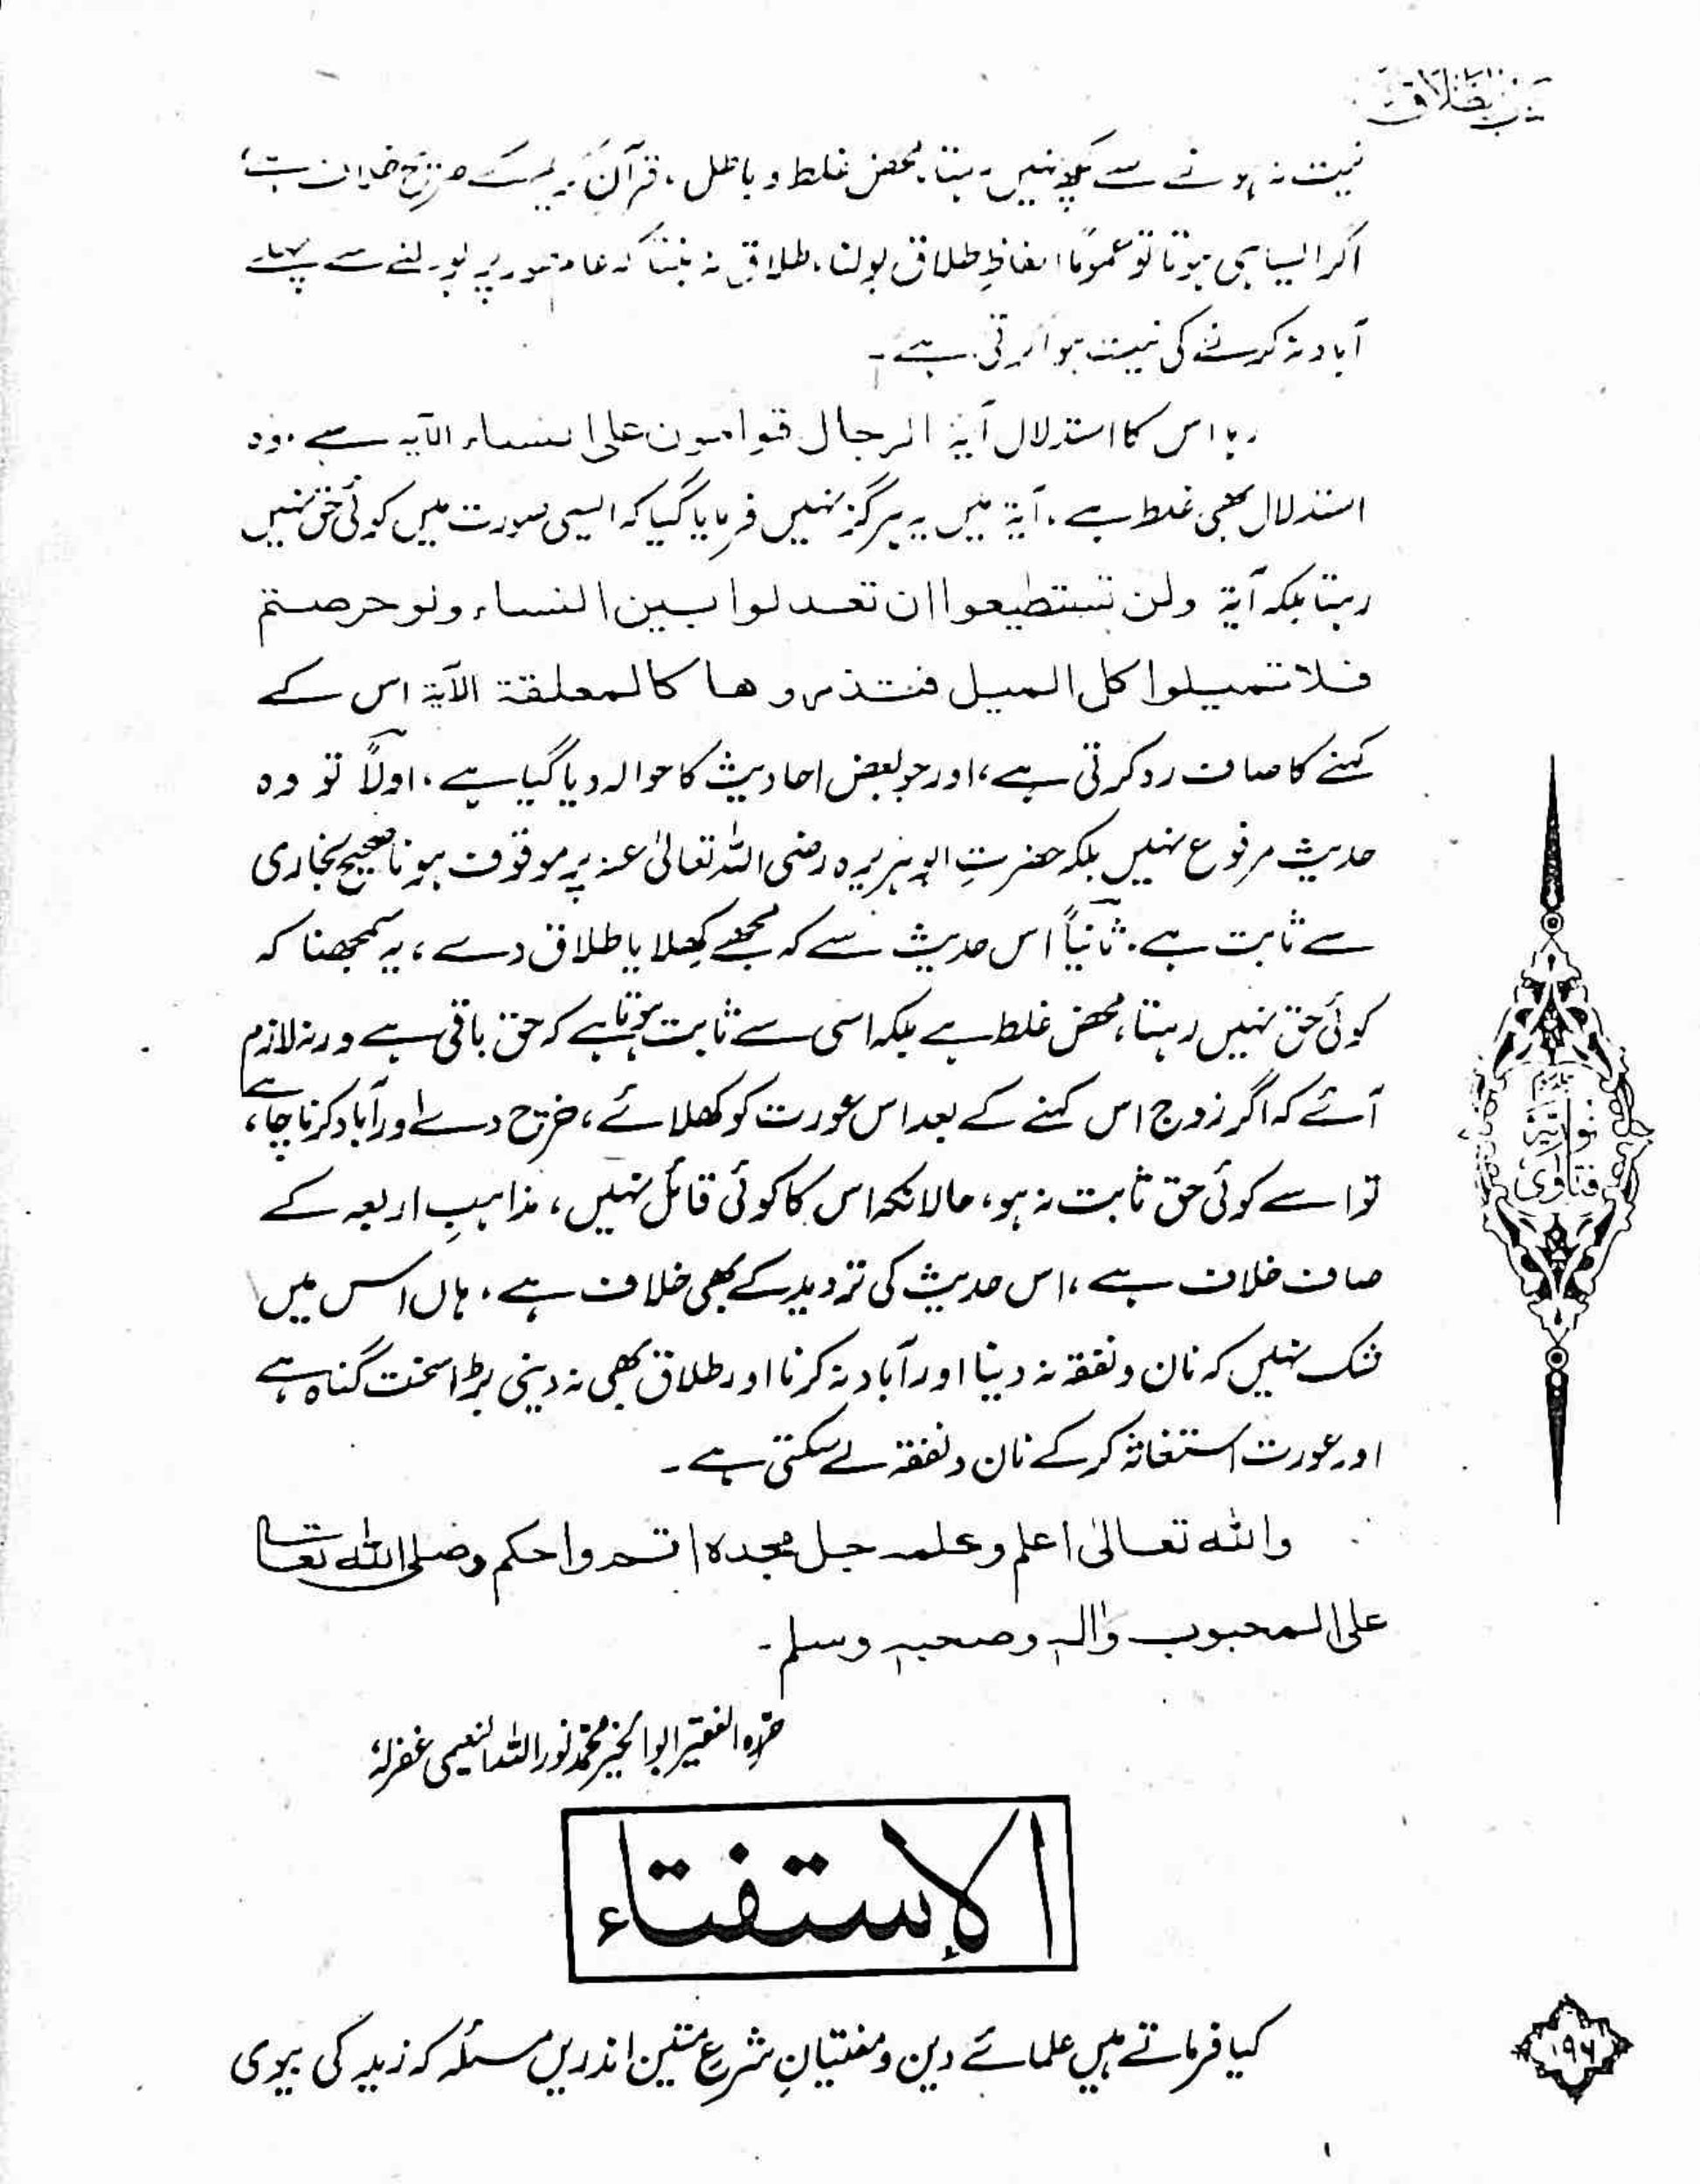 کتاب الطلاق
نیت نہ ہونے سے کچھ نہیں رہتا، محض غلط و باطل، قرآن کریم کے صریح خلاف ہے،
اگر ایسا ہی ہوتا تو عموماً الفاظِ طلاق بولنا، طلاق نہ بنتا کہ عام طور پر بولنے سے پہلے
آباد نہ کرنے کی نیت ہوا کرتی ہے۔
رہا اس کا استدلال آیۃ الرجال قوامون علی النساء الآیہ سے، وہ
استدلال بھی غلط ہے، آیۃ میں یہ ہرگز نہیں فرمایا گیا کہ ایسی صورت میں کوئی حق نہیں
رہتا بلکہ آیۃ ولن تستطیعوا ان تعدلوا بین النساء ولو حرصتم
فلا تمیلوا کل المیل فتذروها کالمعلقۃ الآیۃ اس کے
کہنے کا صاف رد کرتی ہے، اور جو بعض احادیث کا حوالہ دیا گیا ہے، اولاً تو وہ
حدیث مرفوع نہیں بلکہ حضرتِ ابوہریرہ رضی اللہ تعالیٰ عنہ پر موقوف ہونا صحیح بخاری
سے ثابت ہے۔ ثانیاً اس حدیث سے کہ مجھے کھلا یا طلاق دے، یہ سمجھنا کہ
کوئی حق نہیں رہتا، محض غلط ہے بلکہ اسی سے ثابت ہوتا ہے کہ حق باقی ہے ورنہ لازم
آئے کہ اگر زوج اس کہنے کے بعد اس عورت کو کھلائے، خرچ دے اور آباد کرنا چاہے،
تو اسے کوئی حق ثابت نہ ہو، حالانکہ اس کا کوئی قائل نہیں، مذاہبِ اربعہ کے
صاف خلاف ہے، اس حدیث کی تردید کے بھی خلاف ہے، ہاں اس میں
شک نہیں کہ نان و نفقہ نہ دینا اور آباد نہ کرنا اور طلاق بھی نہ دینی بڑا سخت گناہ ہے
اور عورت استغاثہ کر کے نان و نفقہ لے سکتی ہے۔
واللہ تعالیٰ اعلم وعلمہ جل مجدہ اتم واحکم وصلی اللہ تعالیٰ
علی المحبوب واٰلہٖ وصحبہٖ وسلم۔
حررہ الفقیر ابوالخیر محمد نور اللہ النعیمی غفرلہٗ
الإستفتاء
کیا فرماتے ہیں علمائے دین و مفتیانِ شرع متین اندریں مسئلہ کہ زید کی بیوی
فتاوی نوریہ
۱۹۶